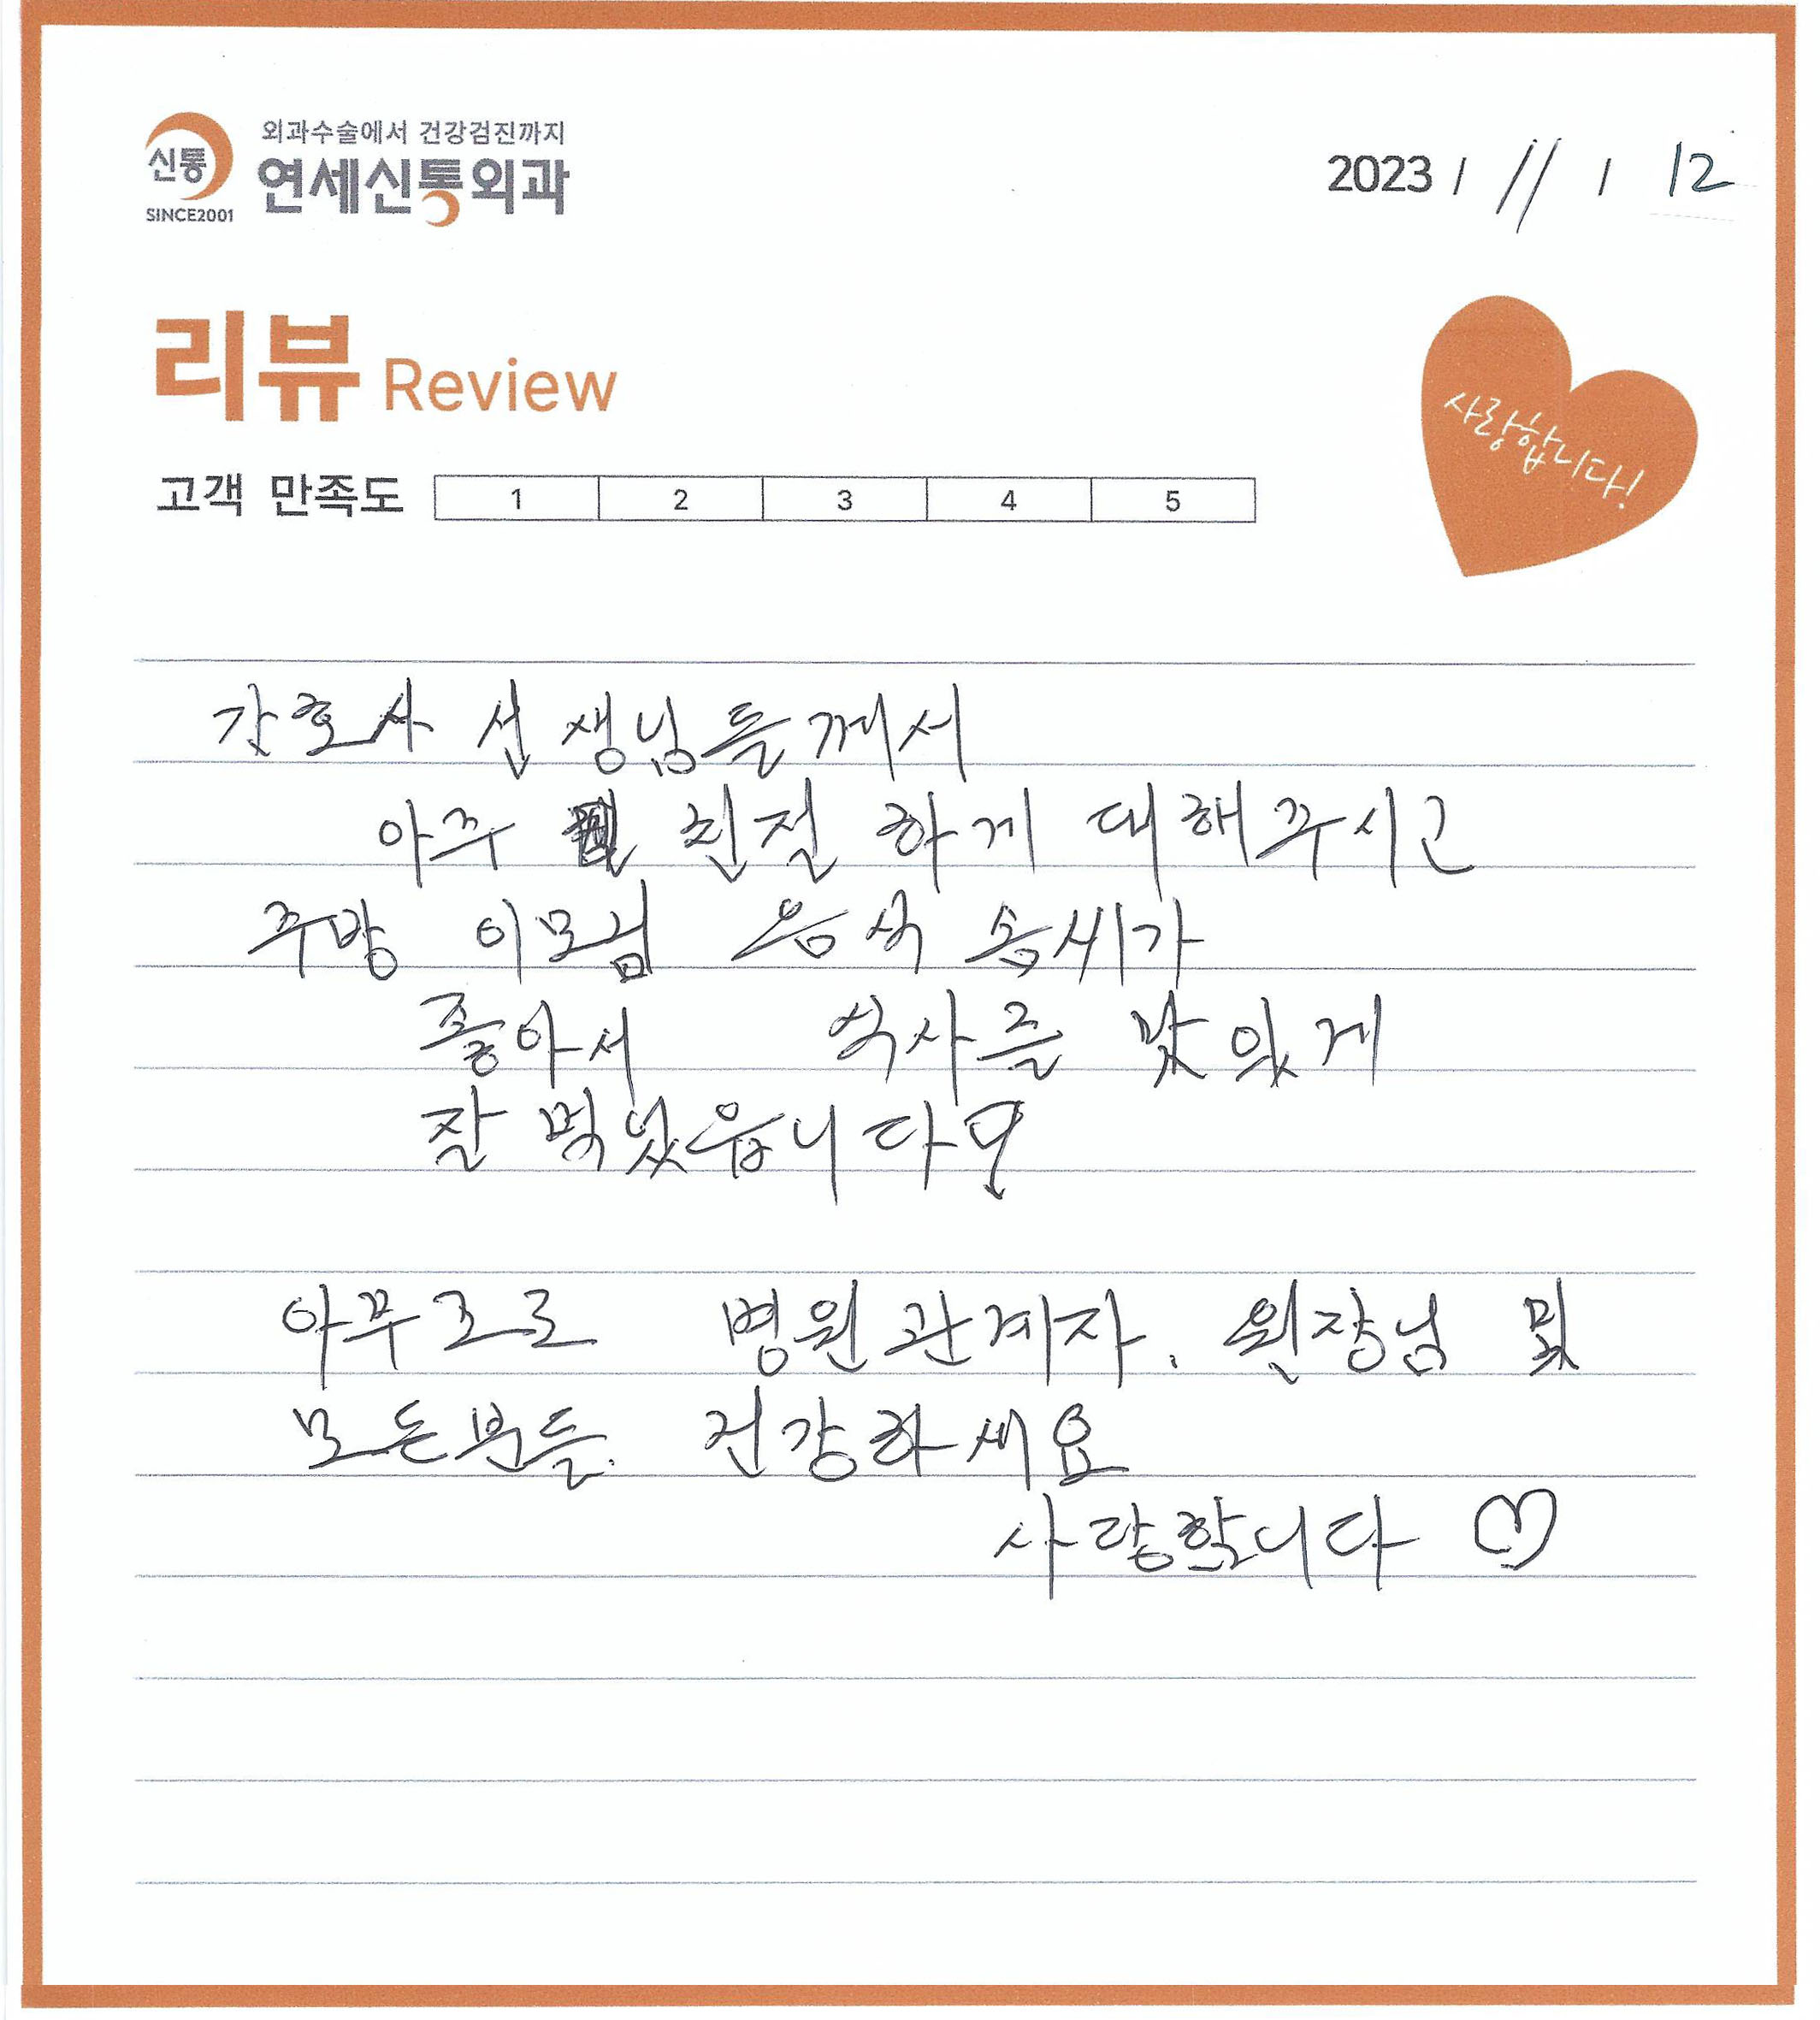 신통
SINCE2001
외과수술에서 건강검진까지
연세신통외과
2023 / 11 / 12
리뷰 Review
사랑합니다!
고객 만족도 1 2 3 4 5
간호사 선생님들께서
아주 친절 하게 대해주시고
주방 이모님 음식 솜씨가
좋아서 식사를 맛있게
잘 먹었읍니다!
아무쪼로 병원관계자. 원장님 및
모든분들. 건강하세요
사랑합니다 ♡